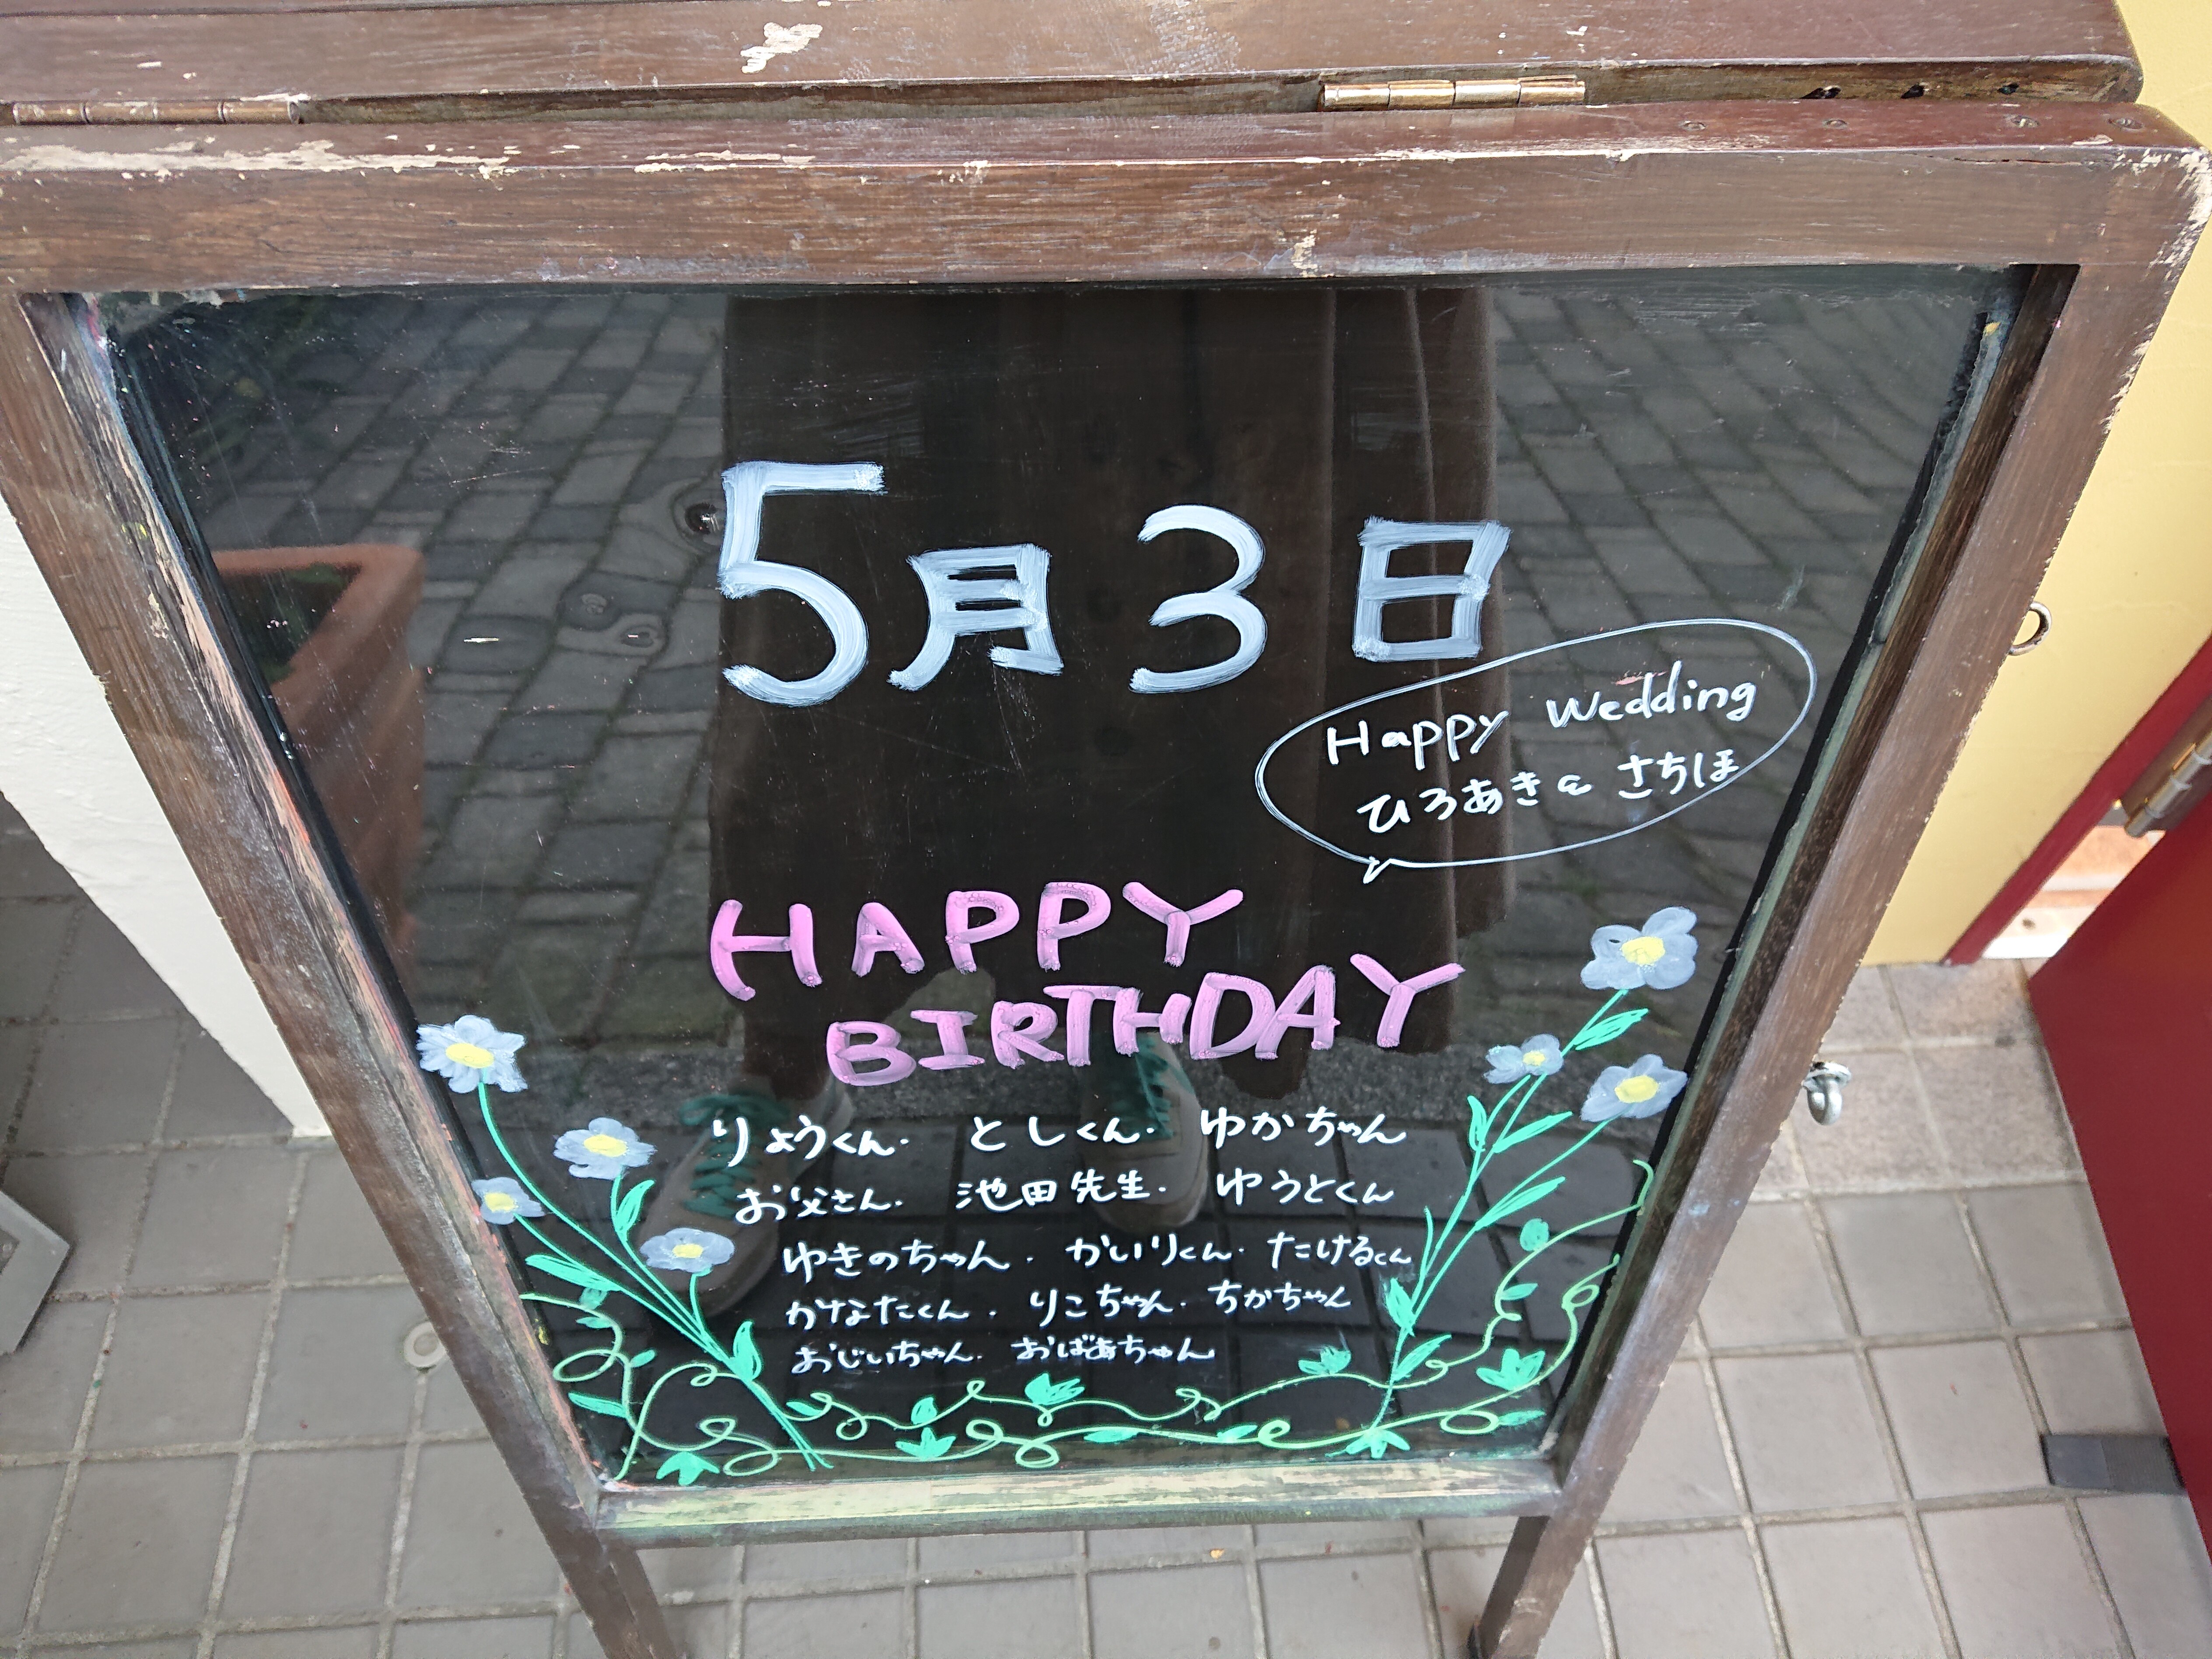 5月3日
Happy Wedding
ひろあき&さちほ
HAPPY
BIRTHDAY
りょうくん. としくん. ゆかちゃん
お父さん. 池田先生. ゆうとくん
ゆきのちゃん. かいりくん. たけるくん
かなたくん. りこちゃん. ちかちゃん
おじいちゃん. おばあちゃん